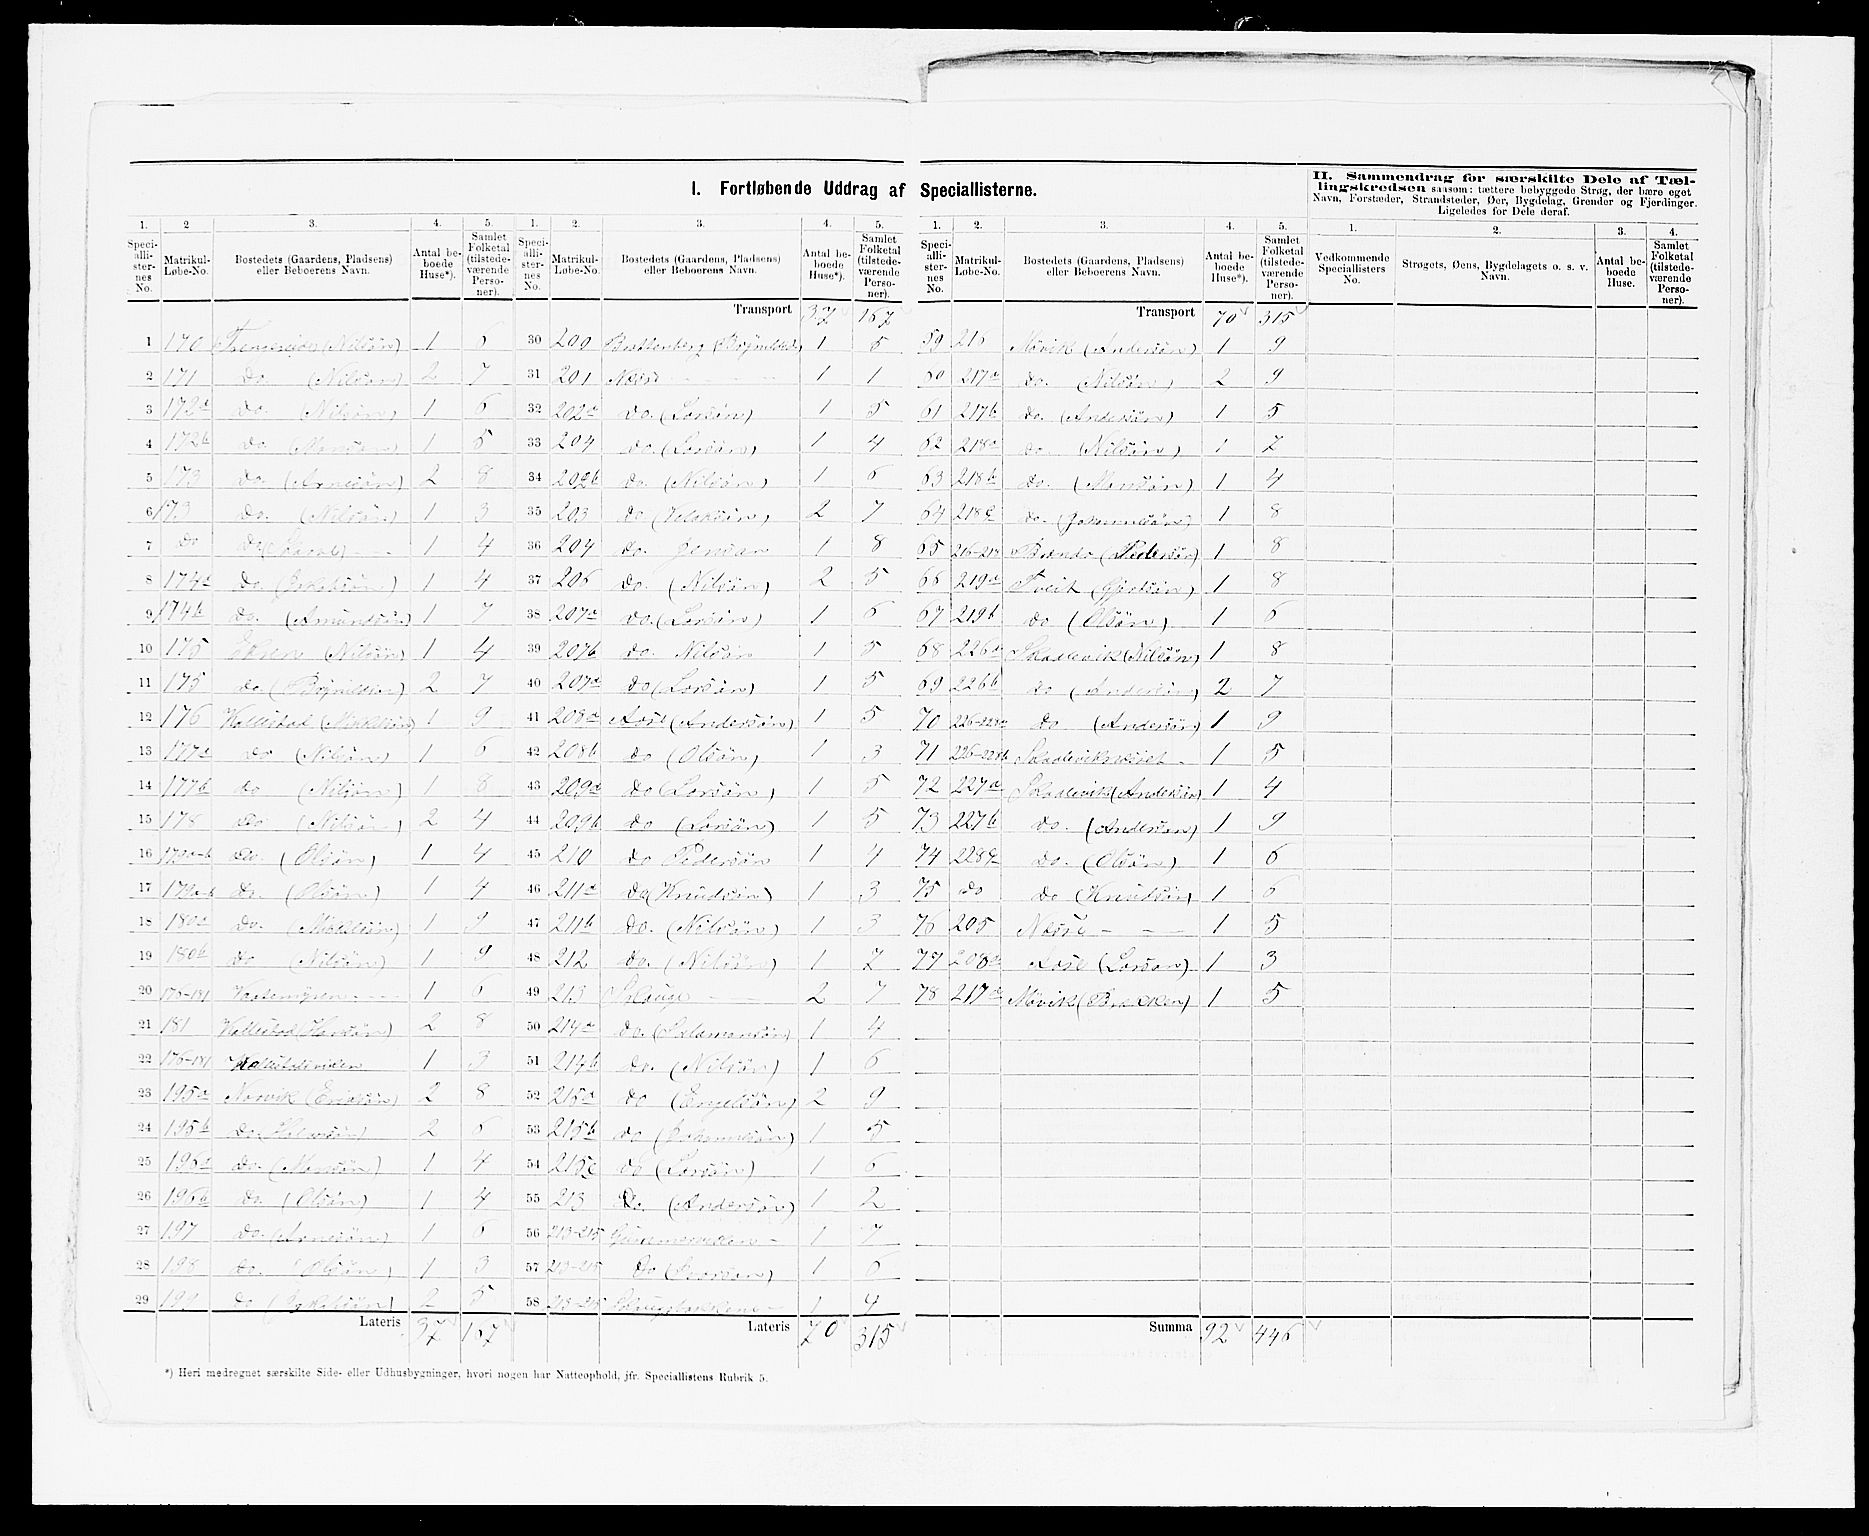 I. Fortløbende Uddrag af Speciallisterne.
II. Sammendrag for særskilte Dele af Tæl-
lingskredsen saasom: tættere bebyggede Strøg, der bære eget
Navn, Forstæder, Strandsteder, Øer, Bygdelag, Grender og Fjerdinger.
Ligeledes for Dele deraf.
1. 2 3. 4. 5.
Speciallisternes No. Matrikul-Løbe-No. Bostedets (Gaardens, Pladsens) eller Beboerens Navn. Antal beboede Huse*). Samlet Folketal (tilstedeværende Personer).
1 170 (Nilsön) 1 6
2 171 do (Nilsön) 2 7
3 172a do. (Nilsön) 1 6
4 172b do (Monsön) 1 5
5 173 do (Arnesön) 2 8
6 173 do. (Nilsön) 1 3
7 do do 1 4
8 174a do 1 4
9 174b do. (Amundsön) 1 7
10 175 (Nilsön) 1 4
11 175 do (Brynildsön) 2 7
12 176 Kallestad (Mikkelsön) 1 9
13 177a do (Nilsön) 1 6
14 177b do (Nilsön) 1 8
15 178 do (Nilsön) 2 4
16 179a-b do. (Olsön) 1 4
17 179a-b do. (Olsön) 1 4
18 180a do. (Mikkelsön) 1 9
19 180b do (Nilsön) 1 9
20 176-181 1 6
21 181 Kallestad (Hansön) 2 8
22 176-181 1 3
23 195a Norvik (Ericksön) 2 8
24 195b do (Halvorsön) 2 6
25 196a do. (Monsön) 1 4
26 196b do. (Olsön) 1 4
27 197 do. (Arnesön) 1 6
28 198 do. (Olsön) 1 3
29 199 do 2 5
Lateris 37 167
1. 2. 3. 4. 5.
Speciallisternes No. Matrikul-Løbe-No. Bostedets (Gaardens, Pladsens) eller Beboerens Navn. Antal beboede Huse*). Samlet Folketal (tilstedeværende Personer).
Transport 37 167
30 200 Brattenberg 1 5
31 201 Næsse 1 1
32 202a do. (Larsön) 1 5
33 204 do. (Larsön) 1 4
34 202b do. (Nilsön) 1 6
35 203 do 2 7
36 204 do. Jensön 1 8
37 206 do. (Nilsön) 2 5
38 207a do. (Larsön) 1 6
39 207b do. Nilsön 1 5
40 207a do (Larsön) 1 5
41 208a Aase (Andersön) 1 5
42 208b do (Olsön) 1 3
43 209a do (Larsön) 1 5
44 209b do (Larsön) 1 5
45 210 do Pedersön 1 4
46 211a do (Knudsön) 1 3
47 211b do. (Nilsön) 1 3
48 212 do. (Nilsön) 1 7
49 213 Skauge 2 7
50 214a do. (Salamonsön) 1 4
51 214b do. (Nilsön) 1 6
52 215a do (Engelsön) 2 9
53 215b do (Johannesön) 1 5
54 215c do (Larsön) 1 6
55 213 do. (Andersön) 1 2
56 213-215 1 7
57 213-215 do 1 6
58 213-215 1 4
Lateris 70 315
1. 2. 3. 4. 5.
Speciallisternes No. Matrikul-Løbe-No. Bostedets (Gaardens, Pladsens) eller Beboerens Navn. Antal beboede Huse*). Samlet Folketal (tilstedeværende Personer).
Transport 70 315
59 216 Møvik (Andersön) 1 9
60 217a do. (Nilsön) 2 9
61 217b do. (Andersön) 1 5
62 218a do. (Nilsön) 1 7
63 218b do. (Monsön) 1 4
64 218c do. (Johannesön) 1 8
65 216-218 (Pedersön) 1 8
66 219a Tveit 1 8
67 219b do (Olsön) 1 6
68 226a Skaalevik (Nilsön) 1 8
69 226b do (Andersön) 2 7
70 226-228a do (Andersön) 1 9
71 226-228b 1 5
72 227a Skaalevik (Andersön) 1 4
73 227b do. (Andersön) 1 9
74 228a do. (Olsön) 1 6
75 do do (Knudsön) 1 6
76 205 Næsse 1 5
77 208a Aase (Larsön) 1 3
78 217a Møvik (Brækken) 1 5
Summa 92 446
1. 2. 3. 4.
Vedkommende Speciallisters No. Strøgets, Øens, Bygdelagets o. s. v. Navn. Antal beboede Huse. Samlet Folketal (tilstedeværende Personer).
*) Heri medregnet særskilte Side- eller Udhusbygninger, hvori nogen har Natteophold, jfr. Speciallistens Rubrik 5.